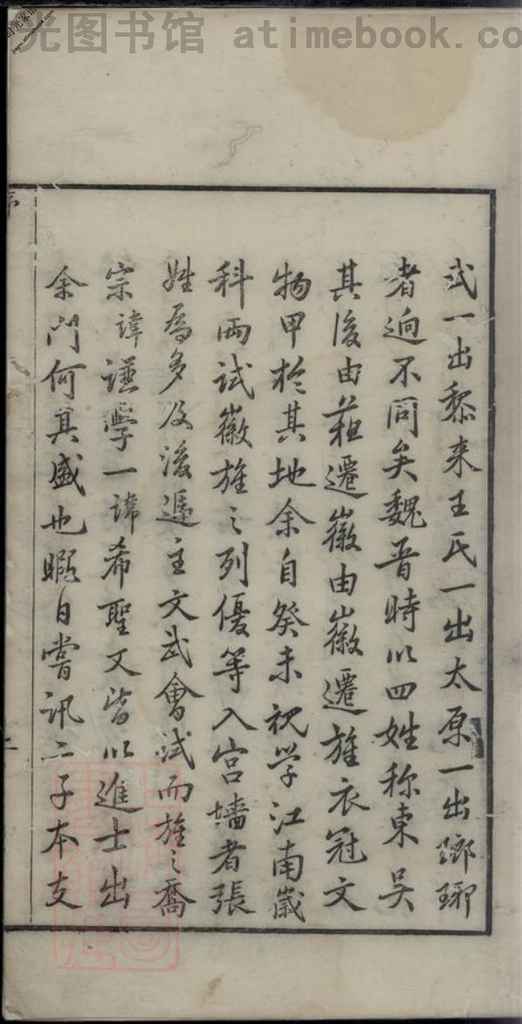 光图书馆 atimebook.co
或一出黎来王氏一出太原一出瑯琊
者逈不同矣魏晋時以四姓称東吴
其後由蘓遷徽由徽遷旌衣冠文
物甲於其地余自癸未視学江南歲
科両試徽旌之列優等入宫墻者張
姓為多及後遞主文武會試而旌之喬
宗諱謹學一諱希聖又皆以進士出
余門何其盛也暇日嘗訊二子本支